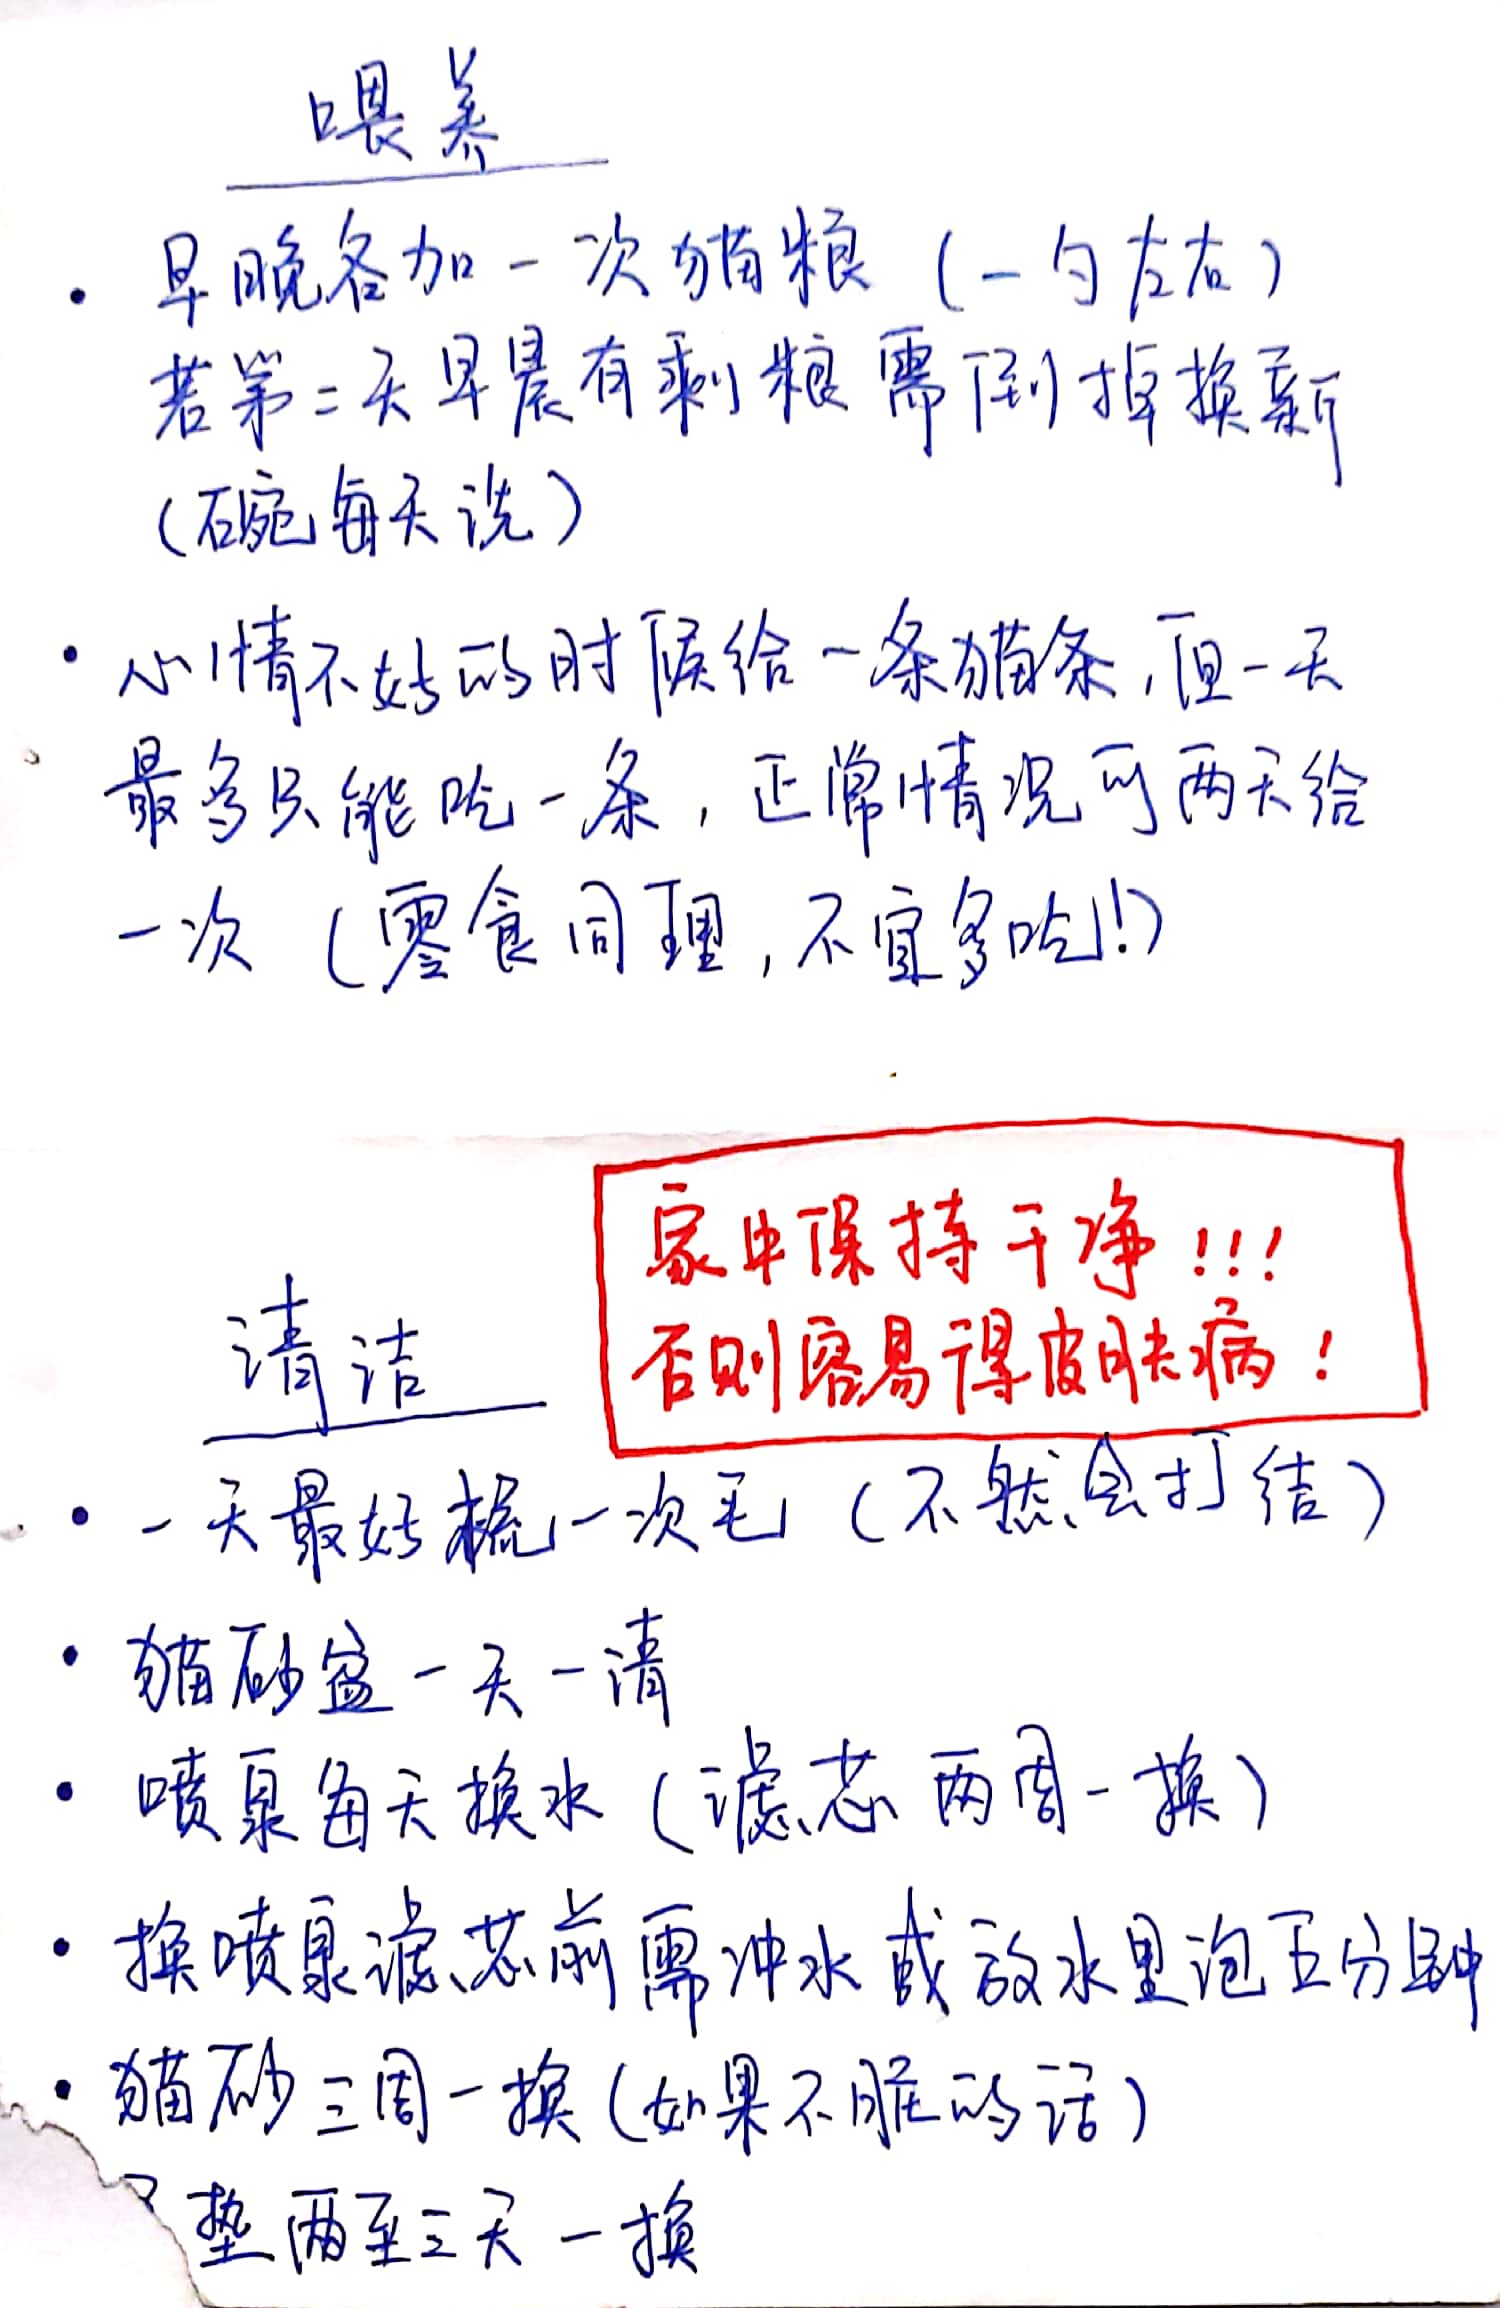 喂养
• 早晚各加一次猫粮（一勺左右）
若第二天早晨有剩粮需倒掉换新
（碗每天洗）
• 心情不好的时候给一条猫条，但一天
最多只能吃一条，正常情况可两天给
一次（零食同理，不宜多吃！）
家中保持干净！！！
否则容易得皮肤病！
清洁
• 一天最好梳一次毛（不然会打结）
• 猫砂盆一天一清
• 喷泉每天换水（滤芯两周一换）
• 换喷泉滤芯前需冲水或放水里泡五分钟
• 猫砂三周一换（如果不脏的话）
垫两至三天一换